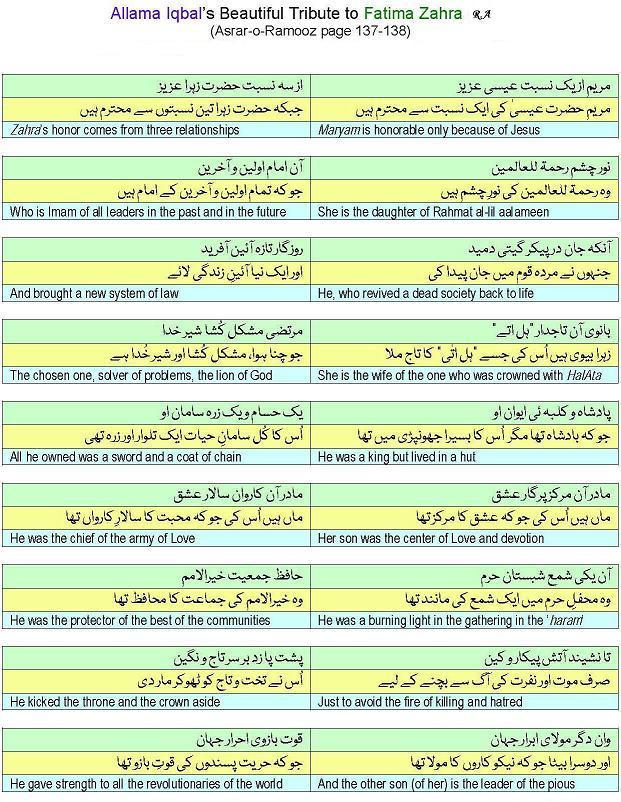 Allama Iqbal's Beautiful Tribute to Fatima Zahra RA
(Asrar-o-Ramooz page 137-138)
مریم از یک نسبت عیسی عزیز
از سه نسبت حضرت زہرا عزیز
مریم حضرت عیسیٰ کی ایک نسبت سے محترم ہیں
جبکہ حضرت زہرا تین نسبتوں سے محترم ہیں
Maryam is honorable only because of Jesus
Zahra's honor comes from three relationships
نور چشم رحمة للعالمین
آن امام اولین و آخرین
وہ رحمة للعالمین کی نورِ چشم ہیں
جو کہ تمام اولین و آخرین کے امام ہیں
She is the daughter of Rahmat al-lil aalameen
Who is Imam of all leaders in the past and in the future
آنکه جان در پیکر گیتی دمید
روزگار تازه آئین آفرید
جنہوں نے مردہ قوم میں جان پیدا کی
اور ایک نیا آئینِ زندگی لائے
He, who revived a dead society back to life
And brought a new system of law
بانوی آن تاجدار "ہل اتے"
مرتضی مشکل کُشا شیر خدا
زہرا بیوی ہیں اُس کی جسے "ہل اتٰی" کا تاج ملا
جو چنا ہوا، مشکل کُشا اور شیر خُدا ہے
She is the wife of the one who was crowned with HalAta
The chosen one, solver of problems, the lion of God
پادشاه و کلبه ئی ایوان او
یک حسام و یک زره سامان او
جو کہ بادشاہ تھا مگر اُس کا بسیرا جھونپڑی میں تھا
اُس کا کُل سامانِ حیات ایک تلوار اور زرہ تھی
He was a king but lived in a hut
All he owned was a sword and a coat of chain
مادر آن مرکز پرگار عشق
مادر آن کاروان سالار عشق
ماں ہیں اُس کی جو کہ عشق کا مرکز تھا
ماں ہیں اُس کی جو کہ محبت کا سالارِ کارواں تھا
Her son was the center of Love and devotion
He was the chief of the army of Love
آن یکی شمع شبستان حرم
حافظ جمعیت خیرالامم
وہ محفلِ حرم میں ایک شمع کی مانند تھا
وہ خیرالامم کی جماعت کا محافظ تھا
He was a burning light in the gathering in the 'haram'
He was the protector of the best of the communities
تا نشیند آتش پیکار و کین
پشت پا زد بر سر تاج و نگین
صرف موت اور نفرت کی آگ سے بچنے کے لیے
اُس نے تخت و تاج کو ٹھوکر مار دی
Just to avoid the fire of killing and hatred
He kicked the throne and the crown aside
وان دگر مولای ابرار جہان
قوت بازوی احرار جہان
اور دوسرا بیٹا جو کہ نیکو کاروں کا مولا تھا
جو کہ حریت پسندوں کی قوتِ بازو تھا
And the other son (of her) is the leader of the pious
He gave strength to all the revolutionaries of the world